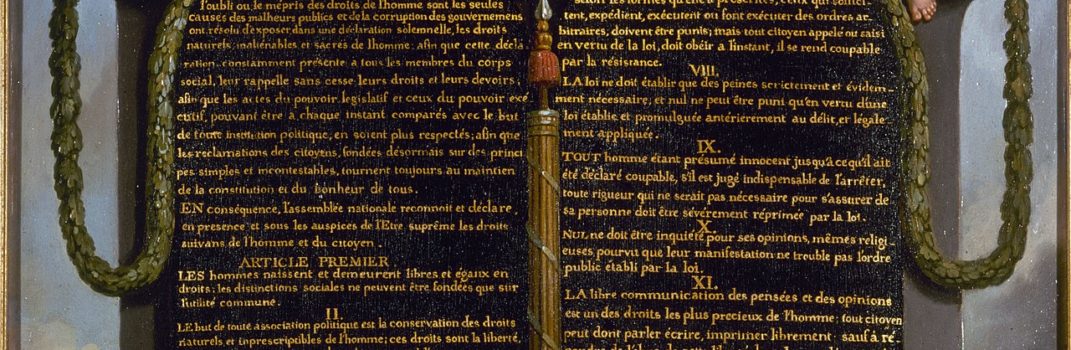 l'oubli ou le mépris des droits de l'homme sont les seules
causes des malheurs publics et de la corruption des gouvernemens
ont résolu d'exposer dans une déclaration solemnelle, les droits
naturels, inaliénables et sacrés de l'homme: afin que cette décla-
ration, constamment présente a tous les membres du corps
social, leur rappelle sans cesse leurs droits et leurs devoirs;
afin que les actes du pouvoir législatif et ceux du pouvoir exé-
cutif, pouvant être à chaque instant comparés avec le but
de toute institution politique, en soient plus respectés; afin que
les reclamations des citoyens, fondées désormais sur des princi-
pes simples et incontestables, tournent toujours au maintien
de la constitution et du bonheur de tous.
EN conséquence, l'assemblée nationale reconnoit et déclare,
en presence et sous les auspices de l'Etre suprême les droits
suivans de l'homme et du citoyen.
ARTICLE PREMIER
LES hommes naissent et demeurent libres et égaux en
droits; les distinctions sociales ne peuvent être fondées que sur
l'utilité commune.
II.
LE but de toute association politique est la conservation des droits
naturels et inprescriptibles de l'homme; ces droits sont la liberté,
tent, expédient, exécutent ou font exécuter des ordres ar-
bitraires, doivent être punis; mais tout citoyen appelé ou saisi
en vertu de la loi, doit obéir a l'instant, il se rend coupable
par la résistance.
VIII.
LA loi ne doit établir que des peines strictement et évidem-
ment nécessaire, et nul ne peut être puni qu'en vertu d'une
loi établie et promulguée antérierement au délit, et légale-
ment appliquée.
IX.
TOUT homme étant présumé innocent jusqu'a ce qu'il ait
été déclaré coupable, s'il est jugé indispensable de l'arrêter,
toute rigueur qui ne serait pas nécessaire pour s'assurer de
sa personne doit être sévèrement réprimée par la loi.
X.
NUL ne doit être inquiété pour ses opinions, mêmes religi-
euses, pourvu que leur manifestation ne trouble pas l'ordre
public établi par la loi.
XI.
LA libre communication des pensées et des opinions
est un des droits les plus precieux de l'homme: tout citoyen
peut dont parler écrire, imprimer librement: sauf a ré-